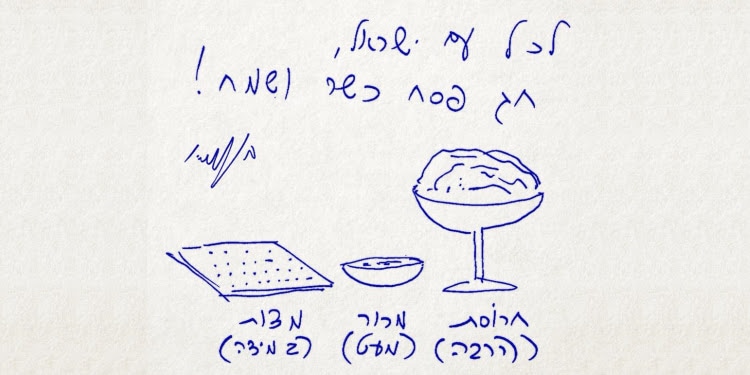 לכל עם ישראל,
חג פסח כשר ושמח!
חרוסת
(הרבה)
מרור
(מעט)
מצות
(במידה)